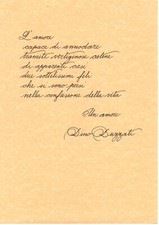 L'amore
capace di annodare
tramite vertiginose catene
di apparenti casi
due sottilissimi fili
che si sono persi
nella confusione della vita
Un amore
Dino Buzzati